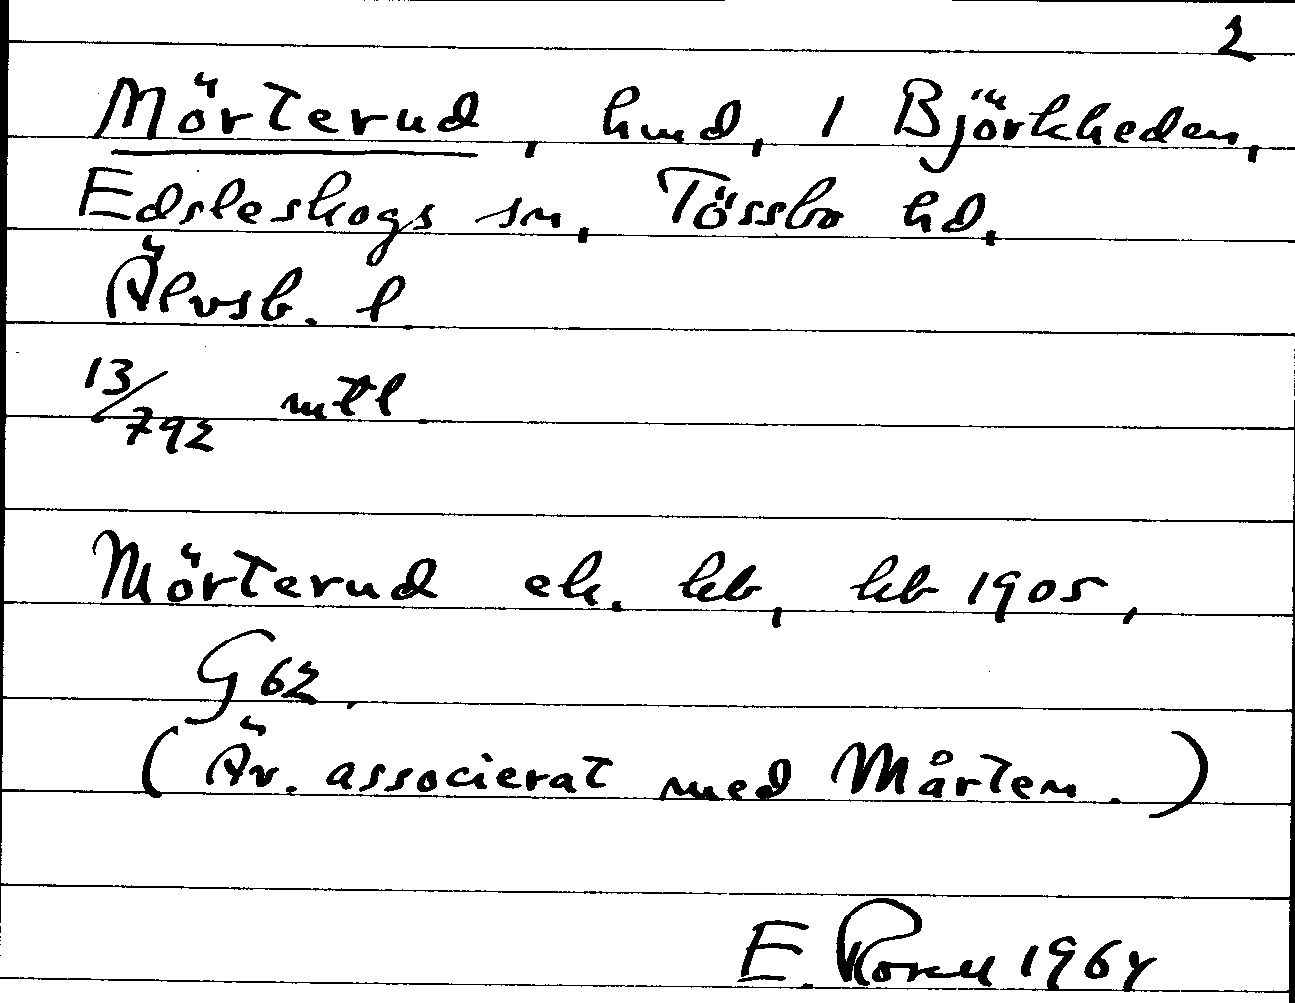 2
Mörterud, hmd, 1 Björkheden,
Edsleskogs sn, Tössbo hd,
Älvsb. l
13/792 mtl
Mörterud ek. kb, kb 1905,
G62.
(Äv. associerat med Mårten.)
E. 1964